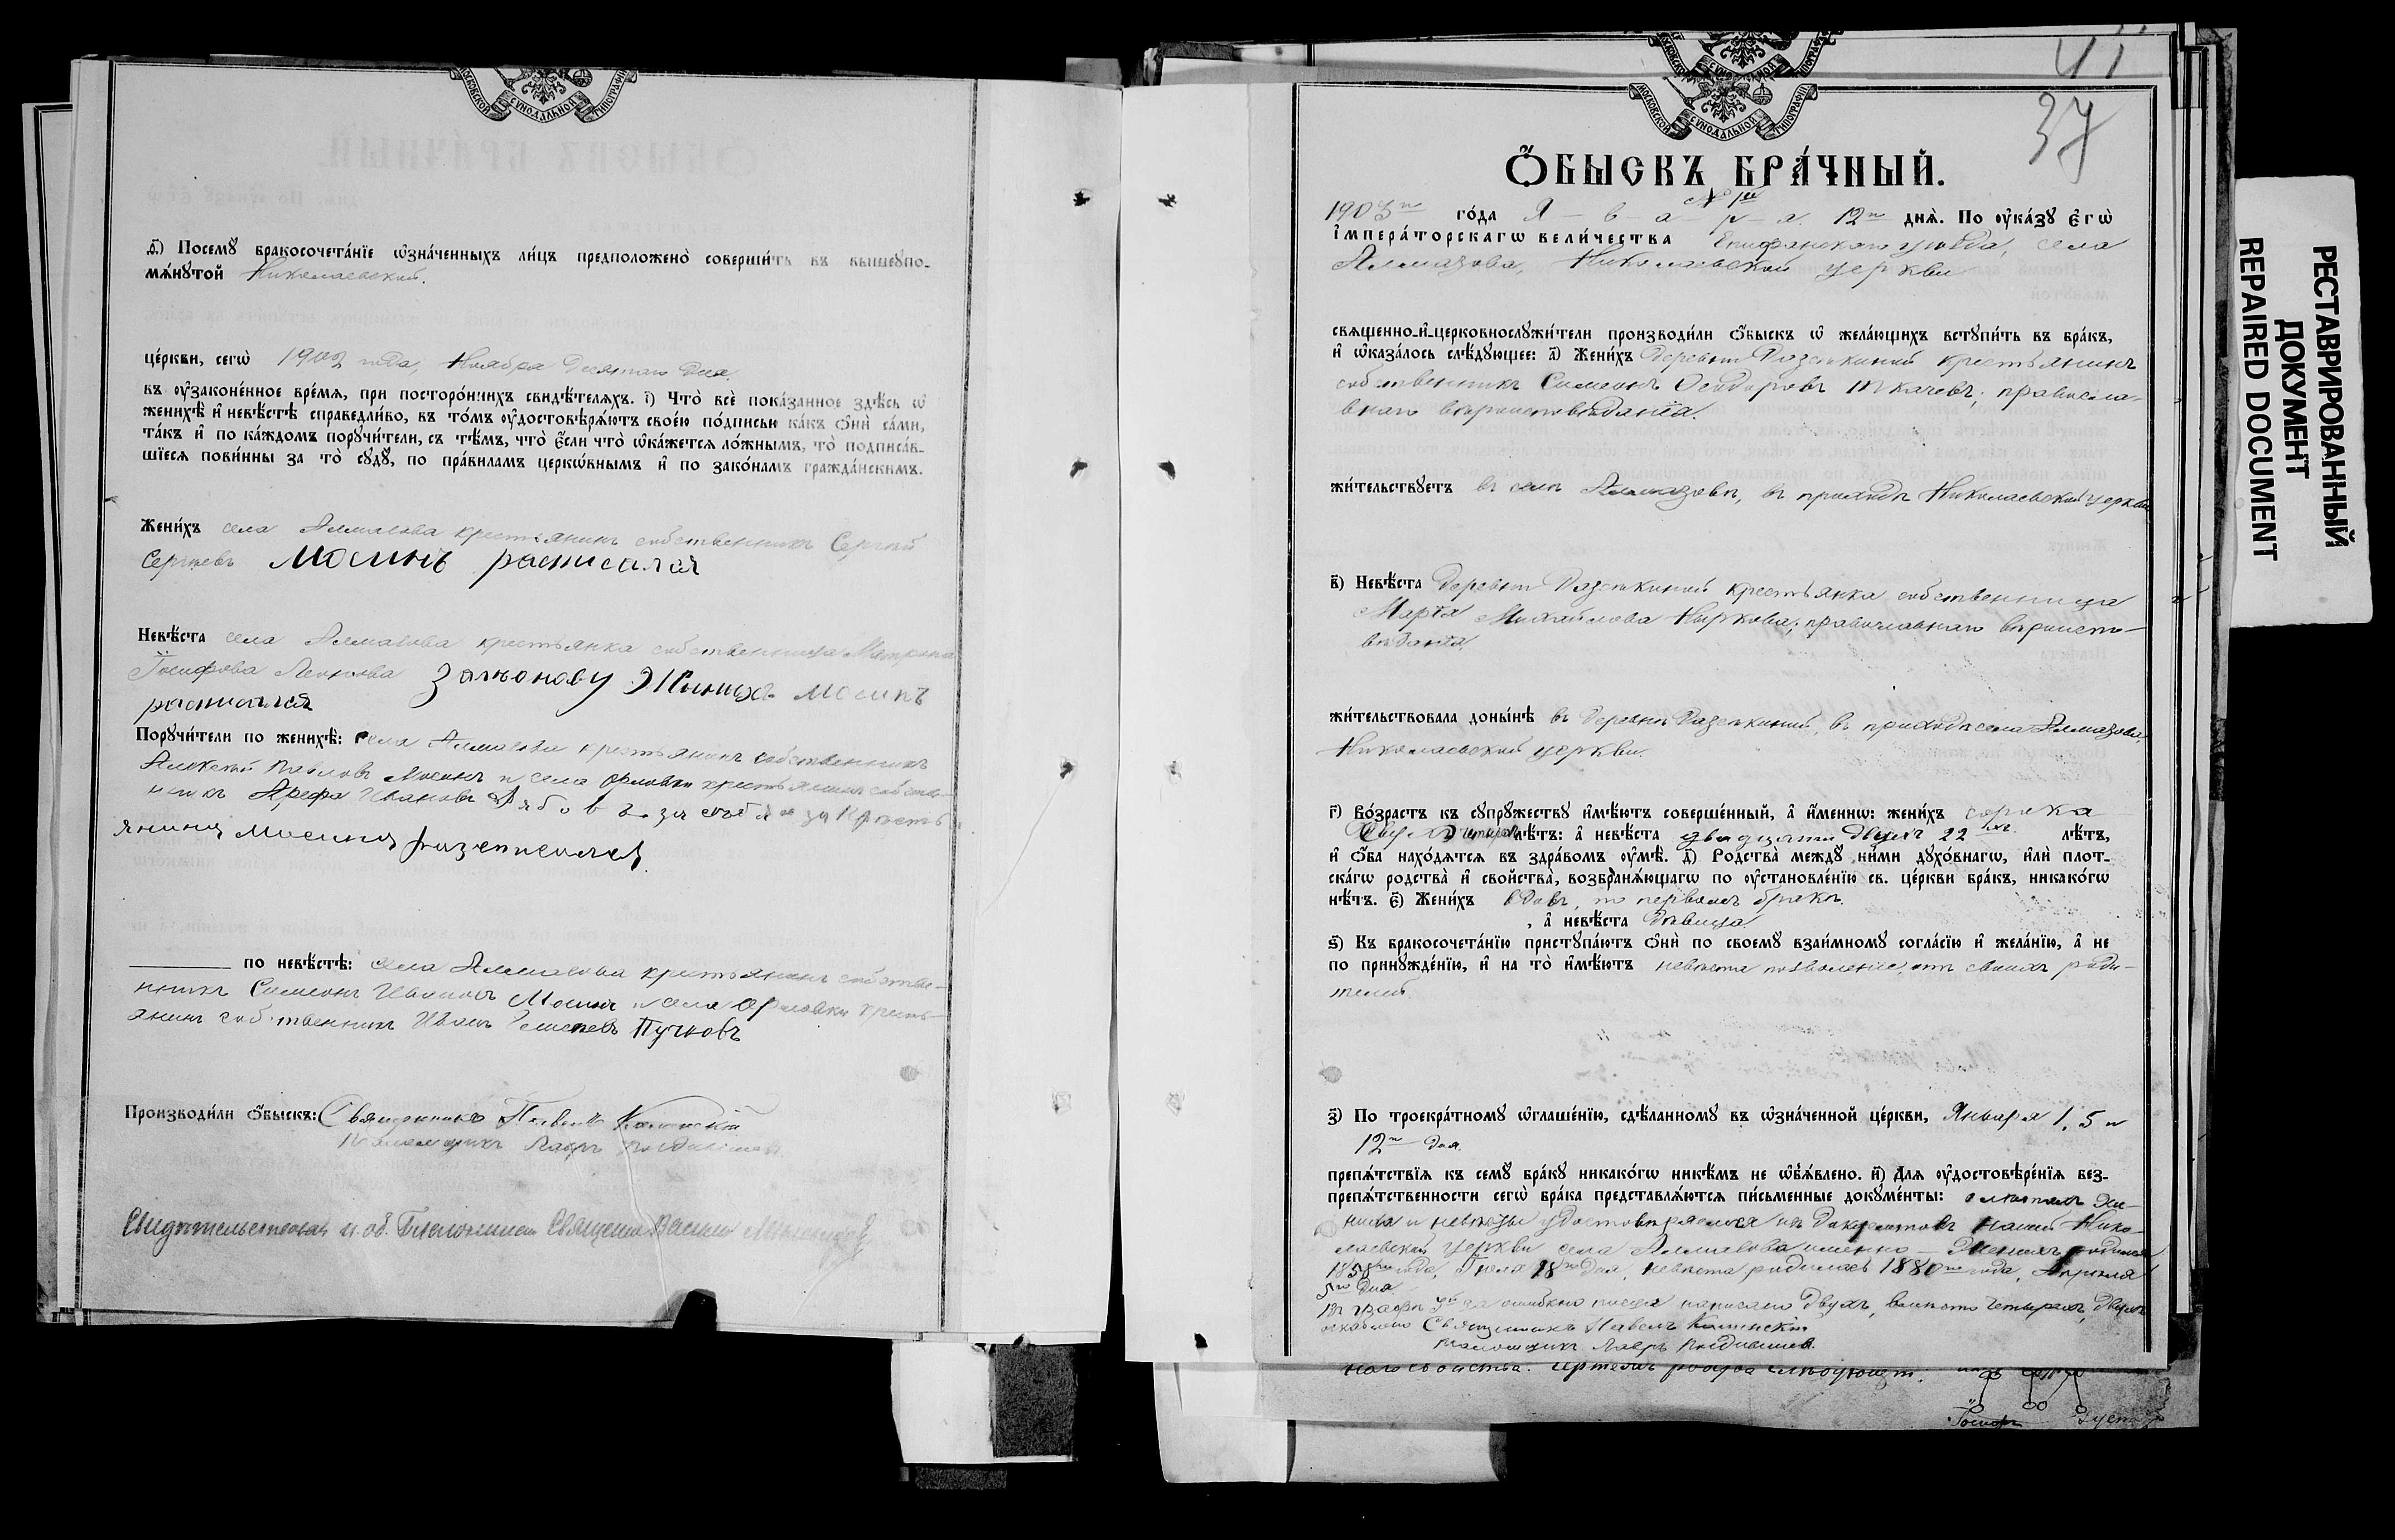 МОСКОВСКОЙ СѴНОДАЛЬНОЙ ТИПОГРАФІИ
ѳ҃) Посемꙋ̀ бракосочета́нїе ѡ҆зна́ченныхъ ли́цъ предположено̀ соверши́ть въ вышеꙋпо-
мѧ́нꙋтой Николаевской.
це́ркви, сегѡ̀ 1902 года, Ноября Десятаго Дня.
въ ᲂу҆законе́нное вре́мѧ, при посторо́ннихъ свидѣ́телѧхъ. і҃) Что̀ всѐ пока́занное здѣ́сь ѡ҆
женихѣ̀ и҆ невѣ́стѣ справедли́во, въ то́мъ ᲂу҆достовѣрѧ́ютъ свое́ю по́дписью ка́къ ѻ҆нѝ са́ми,
та́къ и҆ по ка́ждомъ порꙋчи́тели, съ тѣ́мъ, что̀ є҆́сли что̀ ѡ҆ка́жетсѧ ло́жнымъ, то̀ подписа́в-
шїесѧ пови́нны за то̀ сꙋдꙋ̀, по пра́виламъ церкѡ́внымъ и҆ по зако́намъ гражда́нскимъ.
Жени́хъ села Алмазова крестьянинъ собственникъ Сергѣй
Сергѣевъ Мосинъ расписался
Невѣ́ста села Алмазова крестьянка собственница Матрона
Іосифова Леонова Женихъ Мосинъ
расписался
Порꙋчи́тели по женихѣ̀: села Алмазова крестьянинъ собственникъ
Алексѣй Павловъ Мосинъ и села Орловки крестьянинъ собствен-
никъ Арефа Ивановъ Рябовъ за себя и за кресть
янина Мосина
по невѣ́стѣ: села Алмазова крестьянинъ собствен-
никъ Симеонъ Ивановъ Мосинъ и села Орловки кресть-
янинъ собственникъ Иванъ Пучковъ
Производи́ли ѻ҆́быскъ: Священникъ Павелъ
Псаломщикъ Лавръ
Свидѣтельствовалъ и. об. Благочиннаго Священникъ Василій
37
ѺБЫСКЪ БРА́ЧНЫЙ.
№ 1й
1903го го́да Я-н-в-а-р-я 12го днѧ̀. По ᲂу҆ка́зꙋ є҆гѡ̀
і҆мпера́торскагѡ вели́чества Епифанскаго уѣзда, села
Алмазова, Николаевской церкви
свѧще́нно-и҆-церковнослꙋжи́тели производи́ли ѻ҆́быскъ ѡ҆ жела́ющихъ встꙋпи́ть въ бра́къ,
и҆ ѡ҆каза́лось слѣ́дꙋющее: а҃) Жени́хъ Деревни крестьянинъ
собственникъ Симеонъ Исидоровъ Ткачевъ, православ-
наго вѣроисповѣданія.
жи́тельствꙋетъ въ селѣ Алмазовѣ, въ приходѣ Николаевской церкви
в҃) Невѣ́ста Деревни крестьянка собственница
Марѳа Михайлова Ниркова; православнаго вѣроиспо-
вѣданія
жи́тельствовала доны́нѣ въ деревнѣ въ приходѣ села Алмазова,
Николаевской церкви.
г҃) Во́зрастъ къ сꙋпрꙋ́жествꙋ и҆мѣ́ютъ соверше́нный, а҆ и҆́меннѡ: жени́хъ сорока
лѣ́тъ: а҆ невѣ́ста двадцати двухъ 22хъ лѣ́тъ,
и҆ ѻ҆́ба нахо́дѧтсѧ въ здра́вомъ ᲂу҆мѣ̀. д҃) Родства̀ междꙋ̀ ни́ми дꙋхо́внагѡ, и҆лѝ плот-
ска́гѡ родства̀ и҆ сво́йства, возбранѧ́ющагѡ по ᲂу҆становле́нїю св. це́ркви бра́къ, никако́гѡ
нѣ́тъ. є҃) Жени́хъ вдовъ, по первомъ бракѣ.
, а҆ невѣ́ста дѣвица.
ѕ҃) Къ бракосочета́нїю пристꙋпа́ютъ ѻ҆нѝ по своемꙋ̀ взаи́мномꙋ согла́сїю и҆ жела́нїю, а҆ не
по принꙋжде́нїю, и҆ на то̀ и҆мѣ́ютъ невѣста позволеніе отъ своихъ роди-
телей.
з҃) По троекра́тномꙋ ѡ҆глаше́нїю, сдѣ́ланномꙋ въ ѡ҆зна́ченной це́ркви, Января 1, 5 и
12го дня.
препѧ́тствїѧ къ семꙋ̀ бра́кꙋ никако́гѡ никѣ́мъ не ѡ҆б̾ѧ́влено. и҃) Длѧ ᲂу҆достовѣре́нїѧ без-
препѧ́тственности сегѡ̀ бра́ка представлѧ́ютсѧ пи́сьменные докꙋме́нты: о лѣтахъ же-
ниха и невѣсты удостовѣряемся изъ документовъ нашей Нико-
лаевской церкви села Алмазова именно — Женихъ родился
1858го года, Іюля 18го дня, невѣста родилась 1880го года, Апрѣля
5го дня.
въ графѣ 3й за ошибкою писца написано двухъ, вмѣсто четырехъ, двухъ
Священникъ Павелъ
Псаломщикъ Лавръ
наго свойства. Чертежъ родства слѣдующій.
Іосифъ
РЕСТАВРИРОВАННЫЙ
ДОКУМЕНТ
REPAIRED DOCUMENT